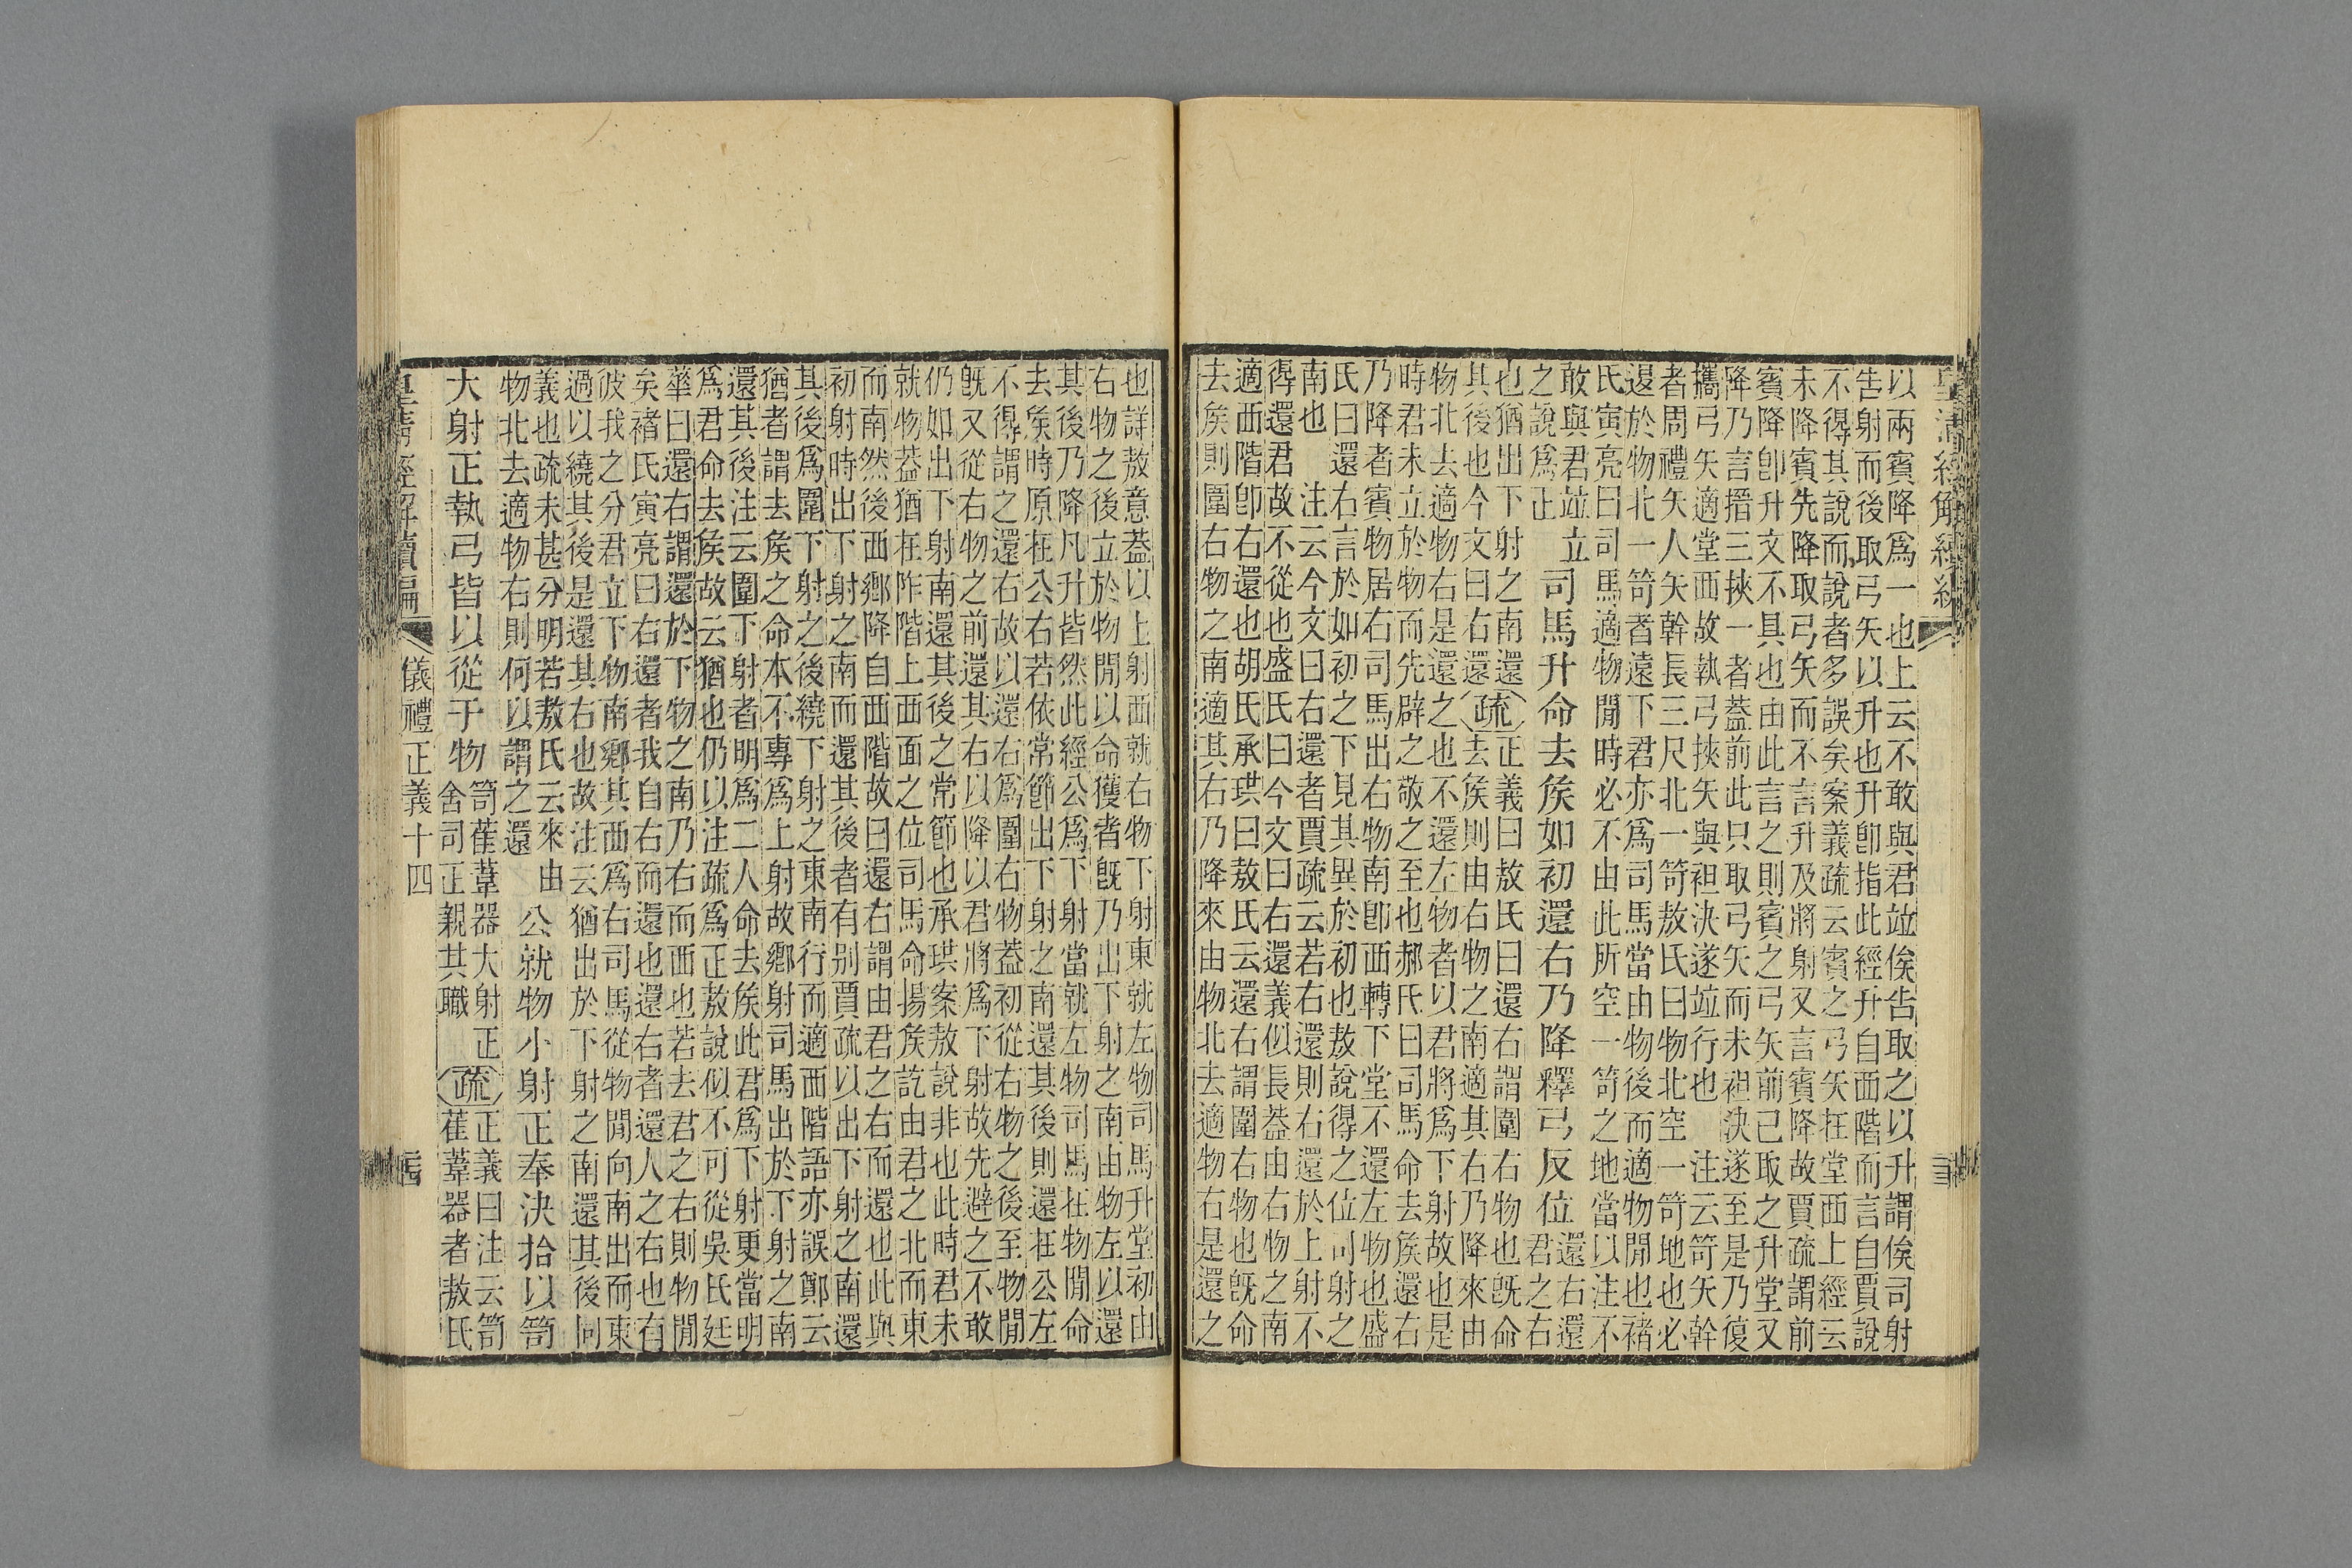 皇清經解續編
以兩賓降爲一也上云不敢與君竝俟告取之以升謂俟司射
告射而後取弓矢以升也升卽指此經升自西階而言自賈說
不得其說而說者多誤矣案義疏云賓之弓矢在堂西上經云
未降賓先降取弓矢而不言升及將射又言賓降故賈疏謂前
賓降卽升文不具也由此言之則賓之弓矢前已取之升堂又
降乃言搢三挾一者蓋前此只取弓矢而未袒決遂至是乃復
攜弓矢適堂西故執弓挾矢與袒決遂竝行也 注云笴矢幹
者周禮矢人矢幹長三尺北一笴敖氏曰物北空一笴地也必
退於物北一笴者遠下君亦爲司馬當由物後而適物閒也褚
氏寅亮曰司馬適物閒時必不由此所空一笴之地當以注不
敢與君竝立
之說爲正
司馬升命去矦如初還右乃降釋弓反位
還右還
君之右
也猶出下射之南還
其後也今文曰右還
疏
正義曰敖氏曰還右謂圍右物也旣命
去矦則由右物之南適其右乃降來由
物北去適物右是還之也不還左物者以君將爲下射故也是
時君未立於物而先辟之敬之至也郝氏曰司馬命去矦還右
乃降者賓物居右司馬出右物南卽西轉下堂不還左物也盛
氏曰還右言於如初之下見其異於初也敖說得之位司射之
南也 注云今文曰右還者賈疏云若右還則右還於上射不
得還君故不從也盛氏曰今文曰右還義似長蓋由右物之南
適西階卽右還也胡氏承珙曰敖氏云還右謂圍右物也旣命
去矦則圍右物之南適其右乃降來由物北去適物右是還之
也詳敖意蓋以上射西就右物下射東就左物司馬升堂初由
右物之後立於物閒以命獲者旣乃出下射之南由物左以還
其後乃降凡升皆然此經公爲下射當就左物司馬在物閒命
去矦時原在公右若依常節出下射之南還其後則還在公左
不得謂之還右故以還右爲圍右物蓋初從右物之後至物閒
旣又從右物之前還其右以降以君將爲下射故先避之不敢
仍如出下射南還其後之常節也承珙案敖說非也此時君未
就物蓋猶在阼階上西面之位司馬命揚矦訖由君之北而東
而南然後西鄉降自西階故曰還右謂由君之右而還也此與
初射時出下射之南而還其後者有别賈疏以出下射之南還
其後爲圍下射之後繞下射之東南行而適西階語亦誤鄭云
猶者謂去矦之命本不專爲上射故鄉射司馬出於下射之南
還其後注云圍下射者明爲二人命去矦此君爲下射更當明
爲君命去矦故云猶也仍以注疏爲正敖說似不可從吳氏廷
華曰還右謂還於下物之南乃右而西也若去君之右則物閒
矣褚氏寅亮曰右還者我自右而還也還右者還人之右也有
彼我之分君立下物南鄉其西爲右司馬從物閒向南出而東
過以繞其後是還其右也故注云猶出於下射之南還其後同
義也疏未甚分明若敖氏云來由
物北去適物右則何以謂之還
公就物小射正奉決拾以笴
大射正執弓皆以從于物
笴萑葦器大射正
舍司正親其職
疏
正義曰注云笴
萑葦器者敖氏
皇清經解續編
儀禮正義十四